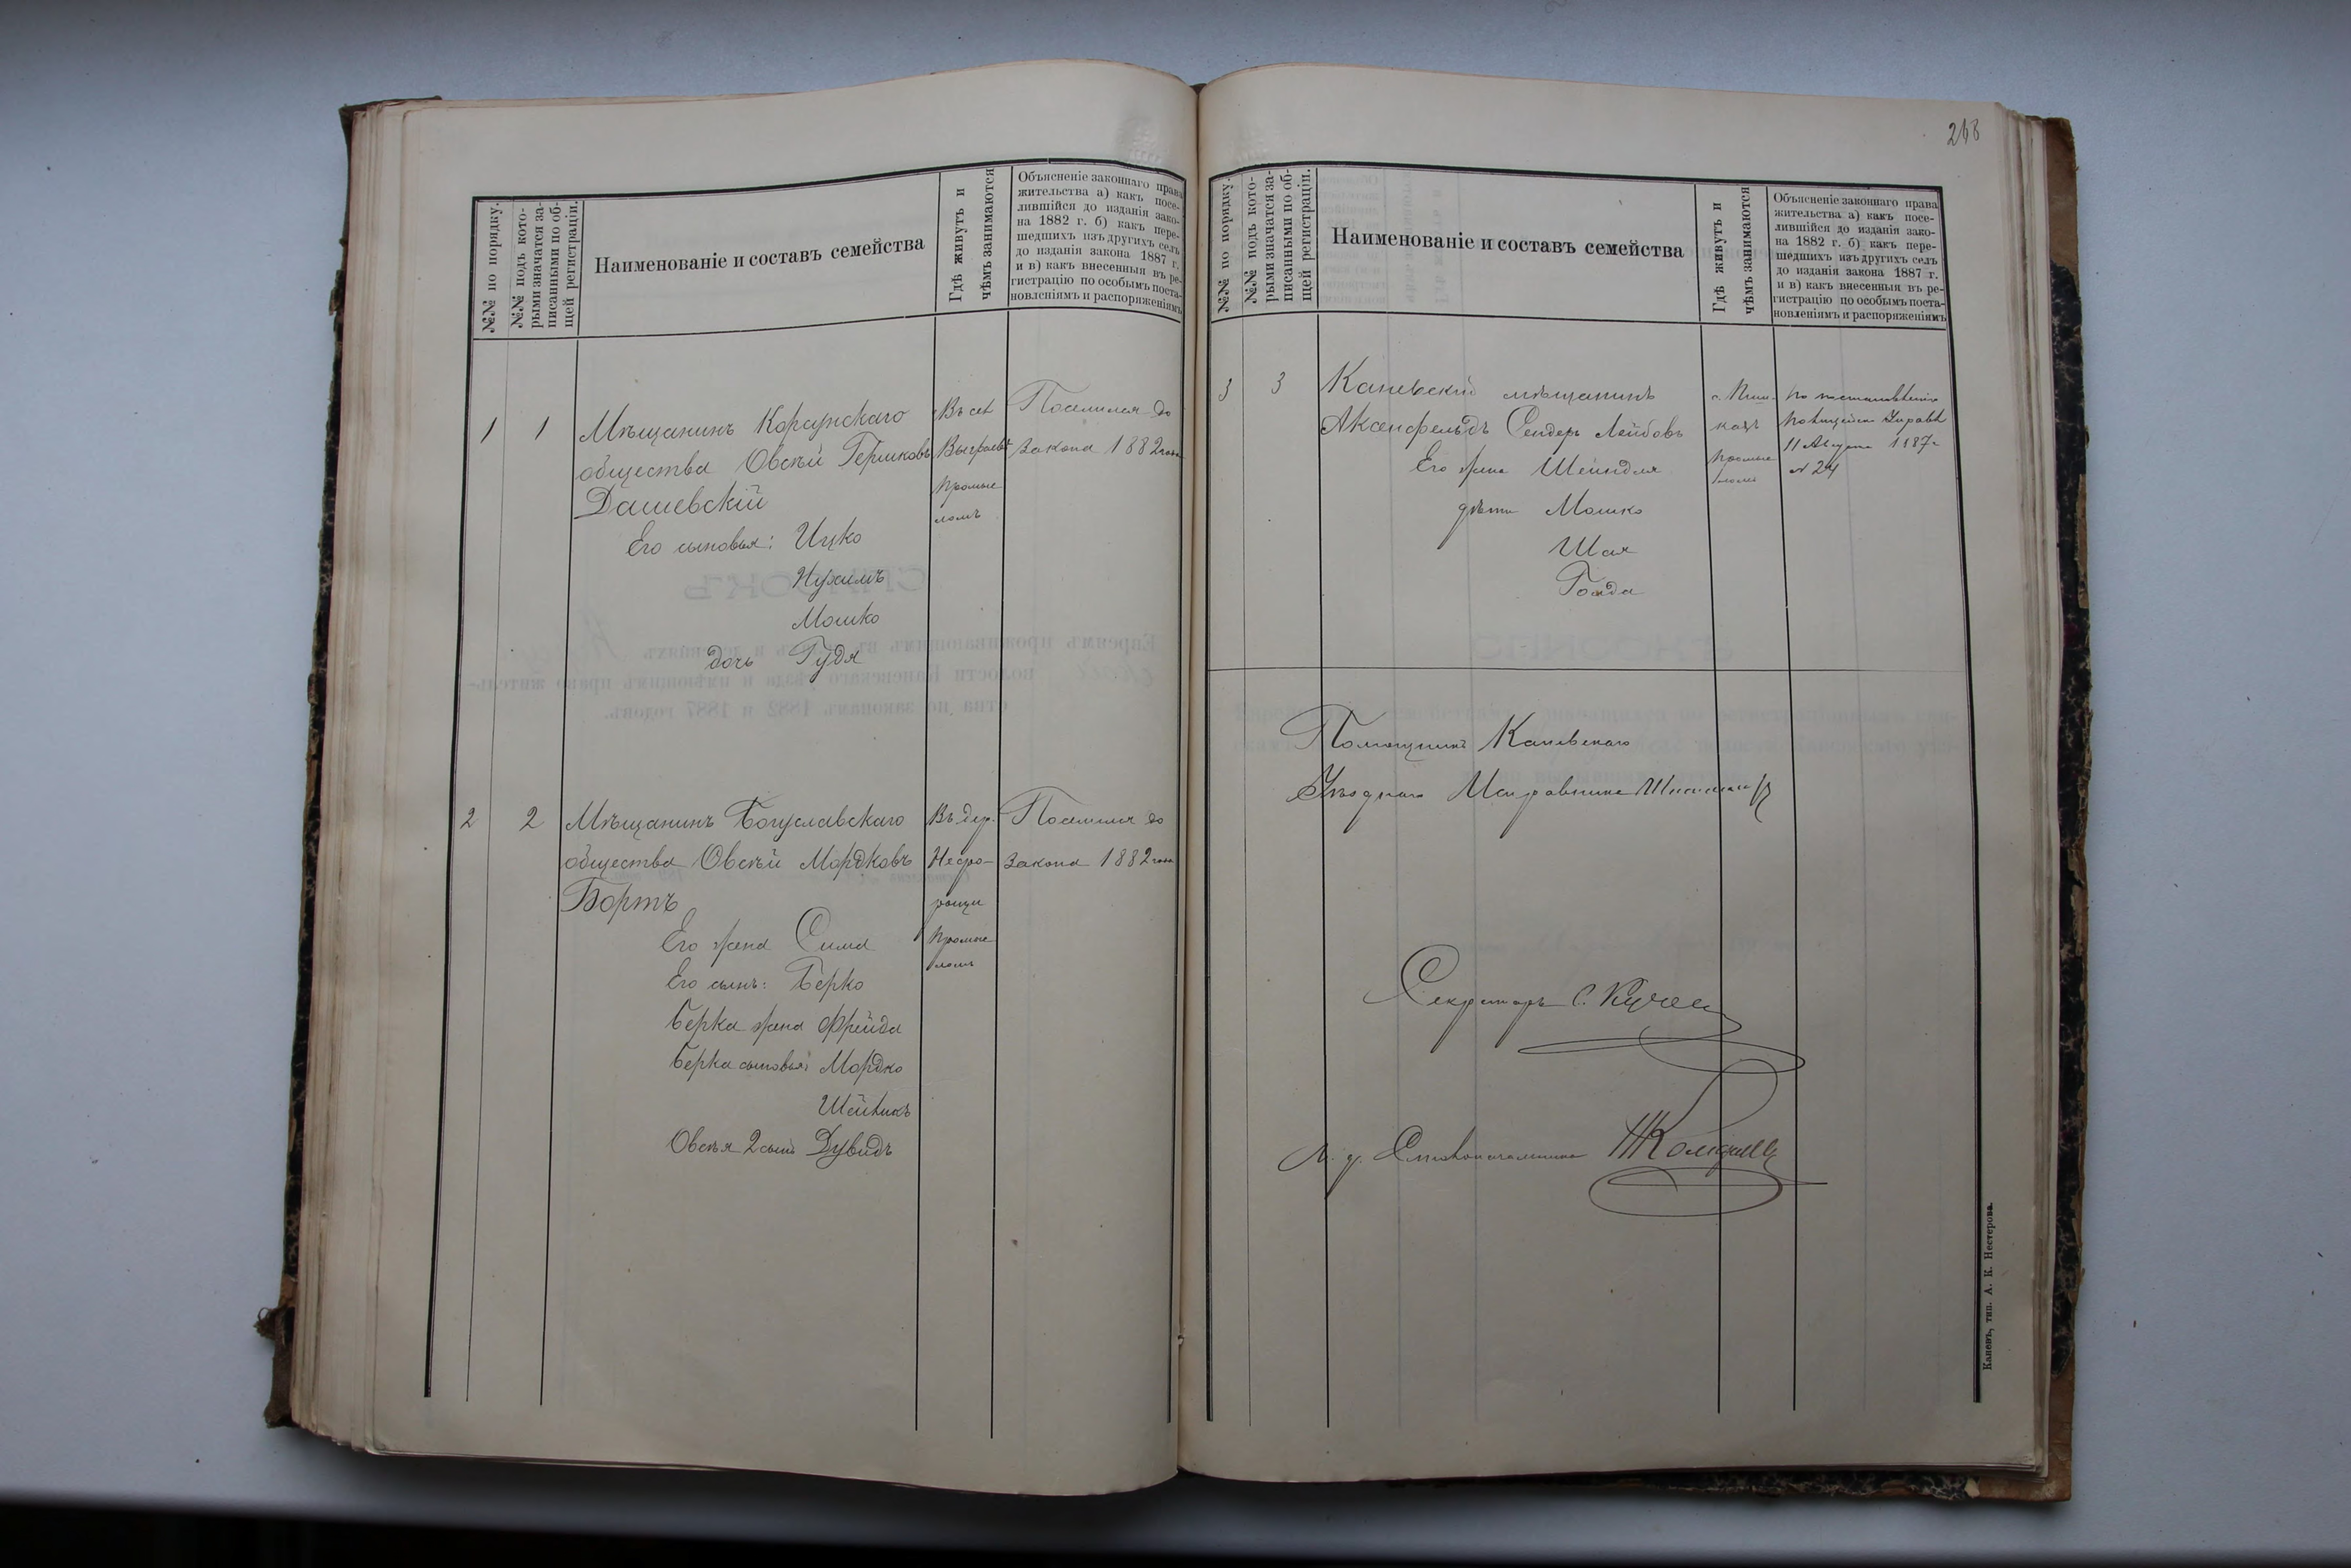 №№ по порядку.
№№ подъ кото-
рыми значатся за-
писанными по об-
щей регистраціи.
Наименованіе и составъ семейства
Гдѣ живутъ и
чѣмъ занимаются
Объясненіе законнаго права
жительства а) какъ посе-
лившійся до изданія зако-
на 1882 г. б) какъ пере-
шедшихъ изъ другихъ селъ
до изданія закона 1887 г.
и в) какъ внесенныя въ ре-
гистрацію по особымъ поста-
новленіямъ и распоряженіямъ
1
1
Мѣщанинъ Корсунскаго
общества Овсѣй Гершковъ
Дашевскій
Его сыновья: Ицко
Нухимъ
Мошко
дочь Гудя
Въ сел
Промыс
ломъ
Поселился до
закона 1882 года
2
2
Мѣщанинъ Богуславскаго
общества Овсѣй Мордковъ
Бортъ
Его жена Сима
Его сынъ: Берко
Берка жена Фрейда
Берка сыновья: Мордко
Овсѣя 2 сынъ Дувидъ
Въ дер.
Промыс
ломъ
Поселился до
закона 1882 года
268
№№ по порядку.
№№ подъ кото-
рыми значатся за-
писанными по об-
щей регистраціи.
Наименованіе и составъ семейства
Гдѣ живутъ и
чѣмъ занимаются
Объясненіе законнаго права
жительства а) какъ посе-
лившійся до изданія зако-
на 1882 г. б) какъ пере-
шедшихъ изъ другихъ селъ
до изданія закона 1887 г.
и в) какъ внесенныя въ ре-
гистрацію по особымъ поста-
новленіямъ и распоряженіямъ
3
3
Каневскій мѣщанинъ
Аксенфельдъ Сендеръ Лейбовъ
Его жена Шейндля
дѣти Мошко
Шая
Голда
Промыс
ломъ
по постановленію
Полицейск. Управл
11 Августа 1887 г
№ 24
Помощникъ Каневскаго
Уѣзднаго Исправника
Секретарь С.
И. д. Столоначальника
Каневъ, тип. А. К. Нестерова.